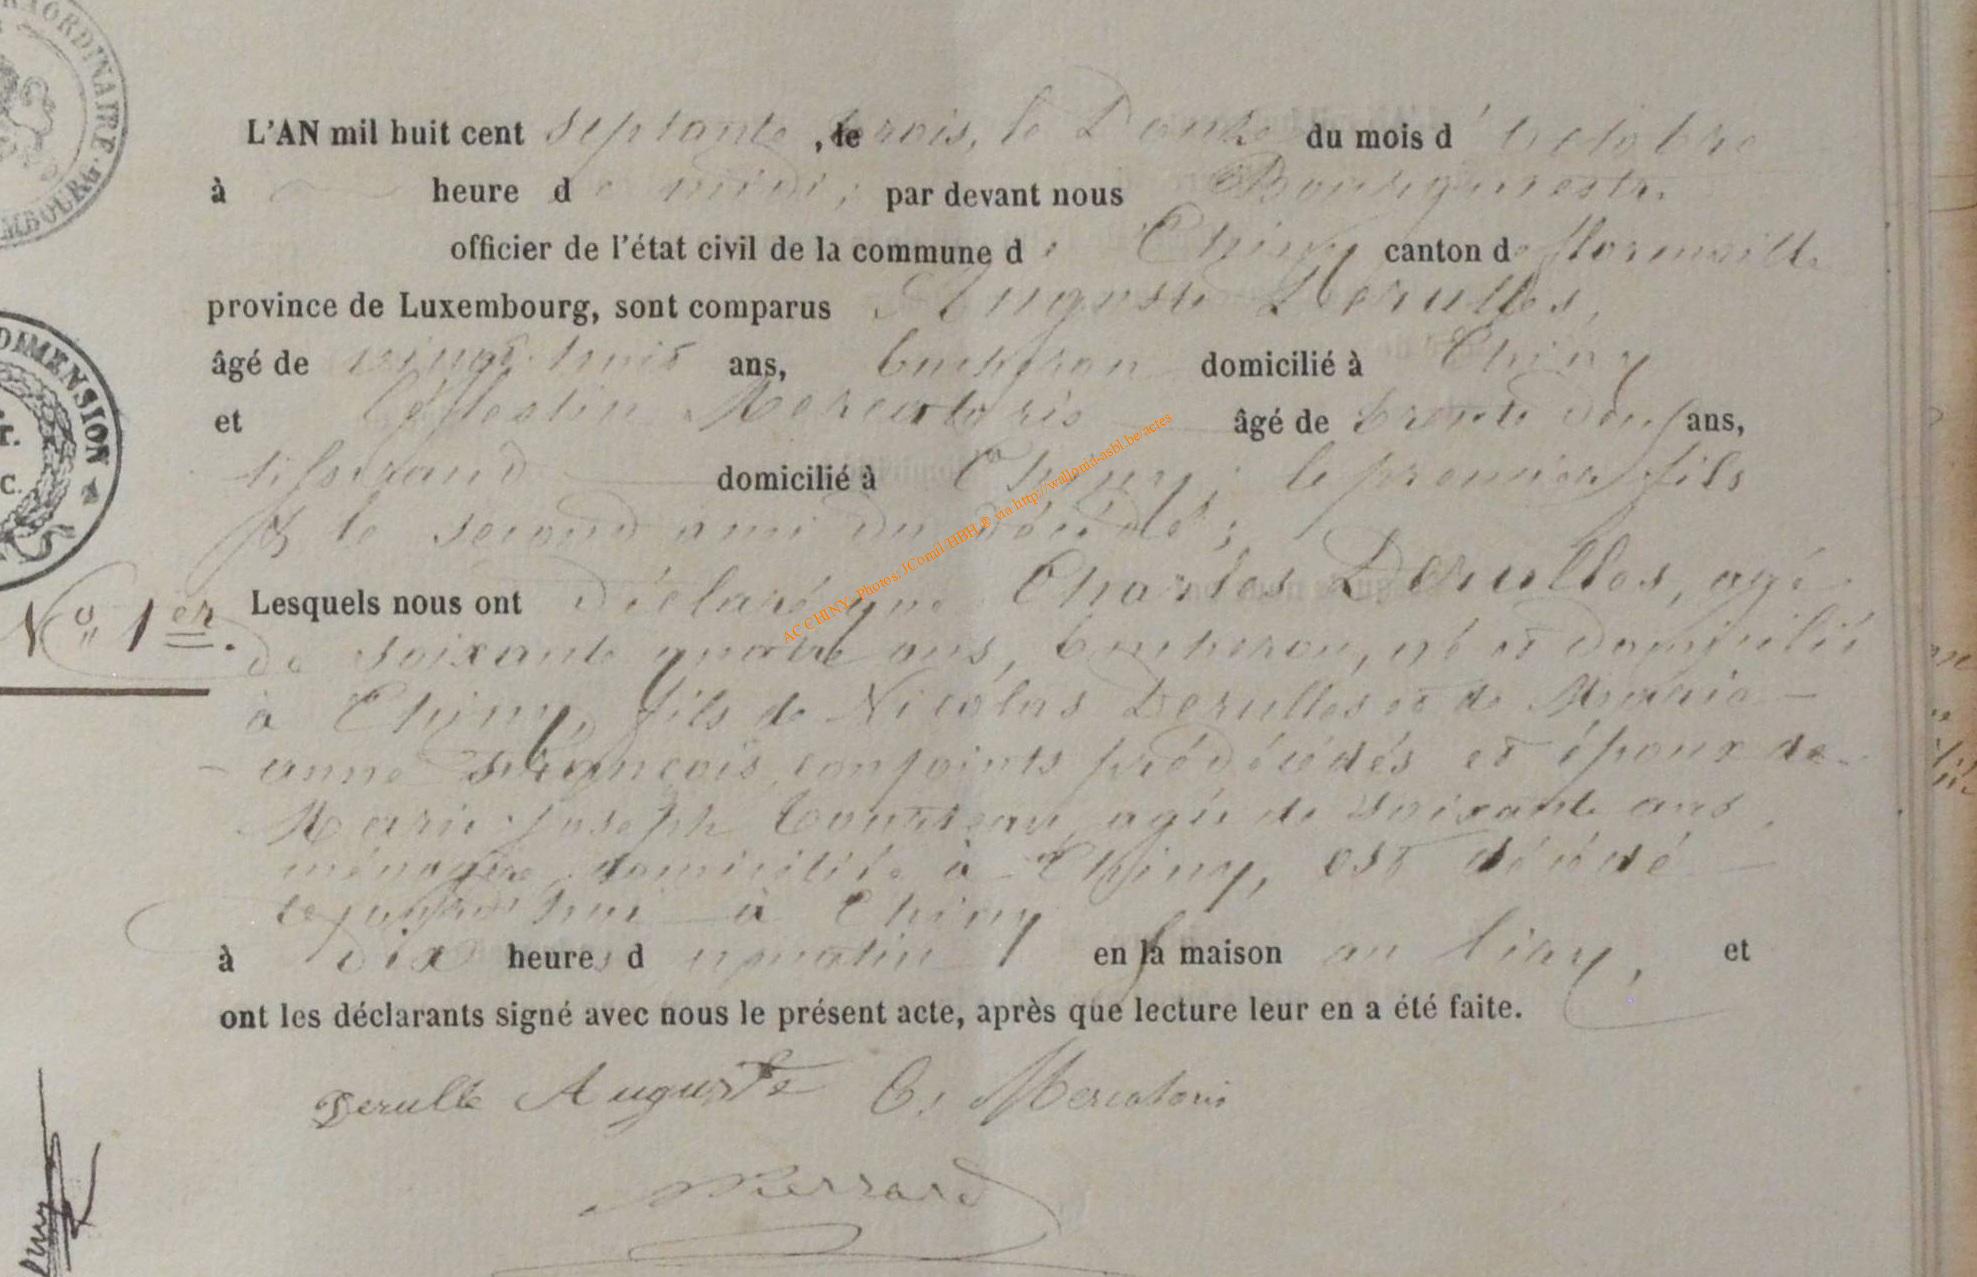 RAORDINAIRE.
MBOURG.
DIMENSION
r.
C.
L'AN mil huit cent septante , le trois, le Douze du mois d'octobre
à heure de midi ; par devant nous Bourgmestre
officier de l'état civil de la commune de Chiny canton de florenville
province de Luxembourg, sont comparus Auguste Derulles,
âgé de vingt-huit ans, bucheron domicilié à Chiny
et Célestin Mercatoris âgé de trente deux ans,
tisserand domicilié à Chiny ; le premier fils
& le second ami du décédé ;
N° 1er.
Lesquels nous ont déclaré que Charles Derulles, agé
de soixante quatre ans, bucheron, né et domicilié
à Chiny, fils de Nicolas Derulles et de Marie-
-anne françois, conjoints prédécédés et époux de
Marie-Joseph agée de soixante ans,
ménagère, domiciliée à Chiny, est décédé
cejourd'hui à Chiny
à dix heures du matin en la maison au et
ont les déclarants signé avec nous le présent acte, après que lecture leur en a été faite.
Derulle Auguste C. Mercatoris
AC CHINY - Photos: JComil HBH ® via http://wallonia-asbl.be/actes